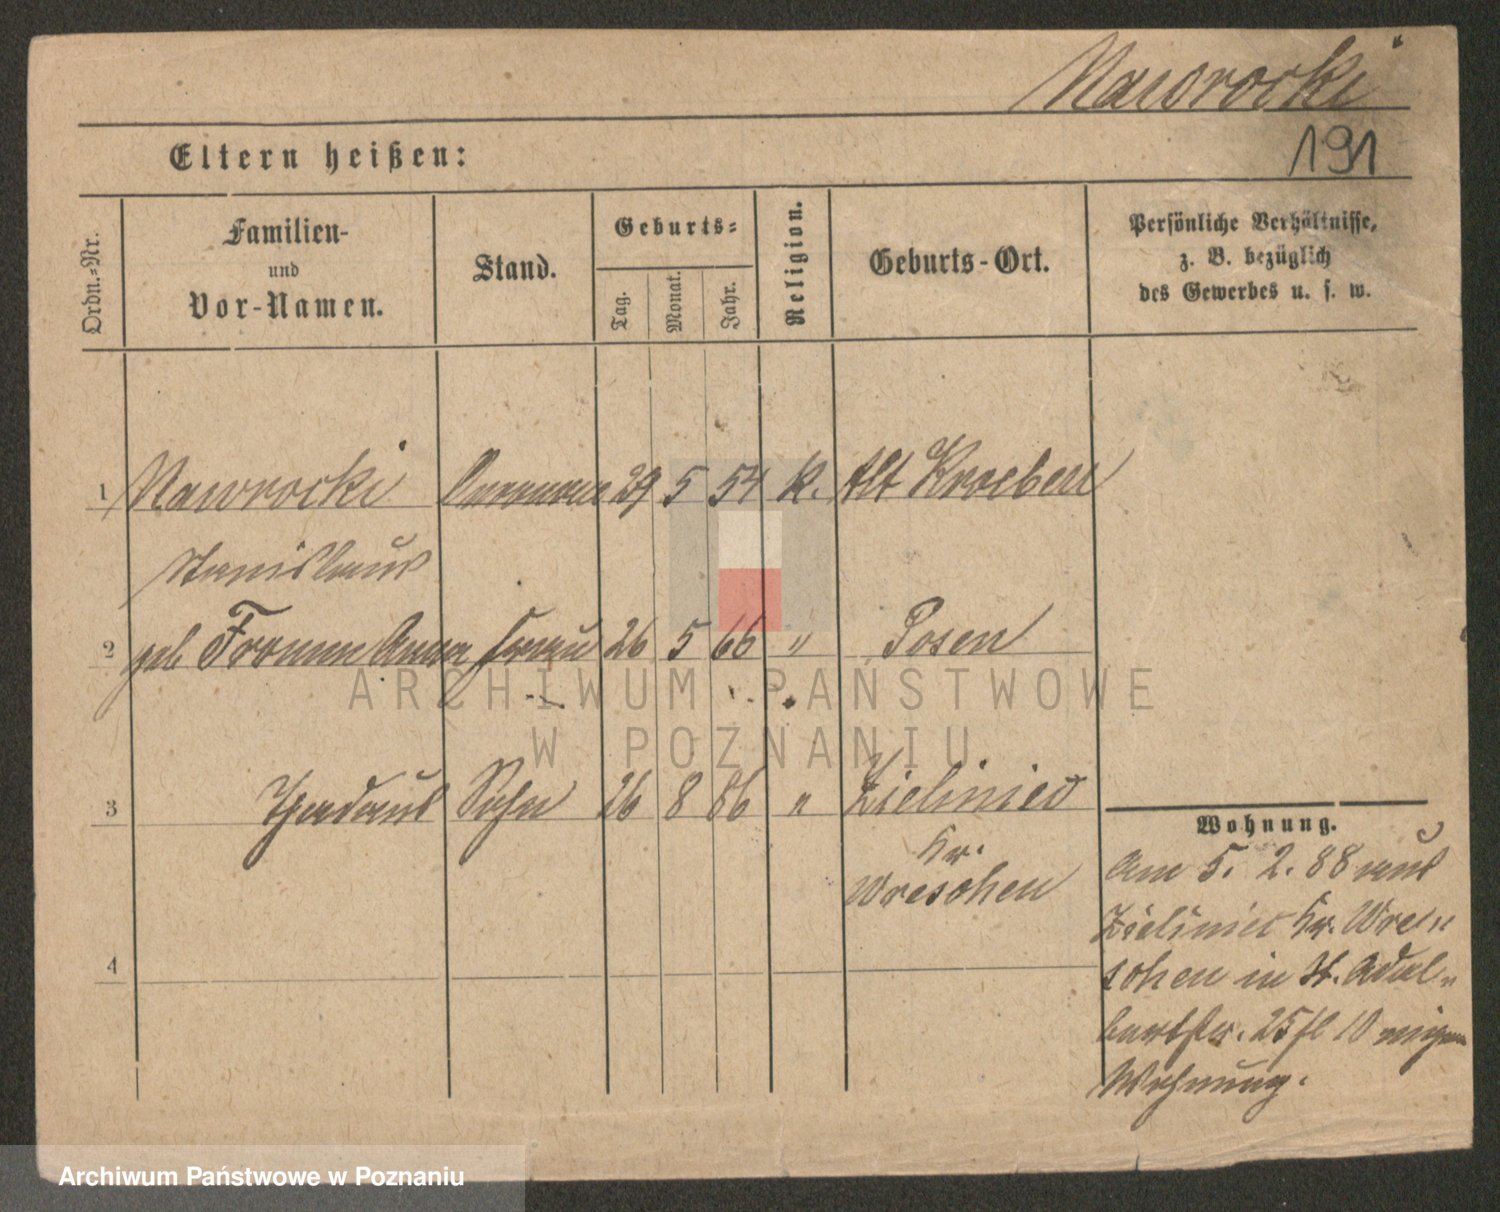 Nawrocki
191
Eltern heißen:
Ordn.-Nr.
Familien-
und
Vor-Namen.
Stand.
Geburts-
Tag.
Monat.
Jahr.
Religion.
Geburts-Ort.
Persönliche Verhältnisse,
z. B. bezüglich
des Gewerbes u. s. w.
1 Nawrocki 29 5 54 K. Alt Kroeben
Stanislaus
2 geb Fromm Anna Frau 26 5 66 " Posen
3 Thadäus Sohn 26 8 86 " Zieliniec
Kr.
Wreschen
4
Wohnung.
Am 5. 2. 88 aus
Zieliniec Kr. Wre"
schen in St. Adal"
bertstr. 25/
Wohnung.
ARCHIWUM PAŃSTWOWE
W POZNANIU
Archiwum Państwowe w Poznaniu